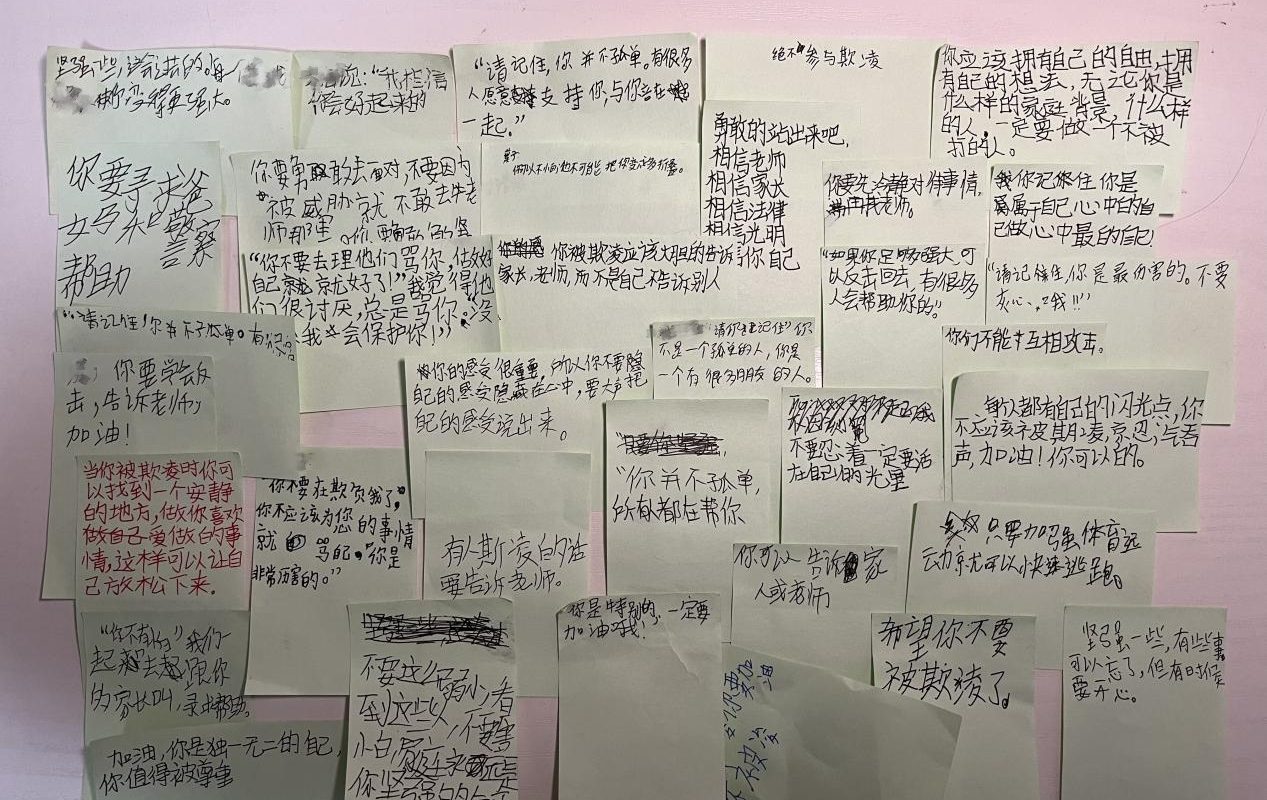 坚强一些,
你变得更强大。
说:"我相信
你会好起来的
"请记住,你并不孤单。有很多
人愿意支持你,与你站在
一起。"
绝不参与欺凌
你应该拥有自己的自由,拥
有自己的想法,无论你是
什么样的家庭背景,什么样
的人,一定要做一个不被
打的人。
你要寻求爸
女马和警察
帮助
你要勇敢去面对,不要因为
被威胁就不敢去告老
师那里。
勇敢的站出来吧,
相信老师
相信家长
相信法律
相信光明
你自己
你要先冷静对待事情,
再找老师。
你记住你是
属于自己心中的自
己做心中最的自己!
"你不要去理他们骂你,估好
自己就好了!"我觉得他
们很讨厌,总是骂你。"没
我会保护你!"
你被欺凌应该大胆的告诉
家长,老师,而不是自己不告诉别人
"如果你足够强大,可
以反击回去,有很多
人会帮助你的"。
"请记住,你是最伤害的。不要
灰心、哦!!"
"请记住!你并不孤单。有
请你记住"你
不是一个孤单的人,你是
一个有很多朋友的人。
你们不能互相攻击。
你要学会反
击,告诉老师,
加油!
你的感受很重要,所以你不要隐
自己的感受隐藏在心中,要大声把
自己的感受说出来。
"你并不孤单,
所有都在帮你
不要忍着一定要活
在自己的光里
每人都有自己的闪光点,你
不应该被其凌,忍气吞
声,加油!你可以的。
当你被欺凌时你可
以找到一个安静
的地方,做你喜欢
做自己爱做的事
情,这样可以让自
己放松下来。
你不要在欺负我了,"
你不应该为您的事情
就骂自己,"你是
非常厉害的。"
有人欺凌自的话
要告诉老师。
只要加强体育运
动就可以快速逃跑。
你可以告诉家
人或老师
"你不有的"我们一
起去跟你
的家长叫,寻求帮助。
不要这么
到这些人,不要害
你是特别的,一定要
加油哦!
希望你不要
被欺凌了。
坚强一些,有些事
可以忘了,但有时候
要开心。
加油,你是独一无二的自己,
你值得被尊重